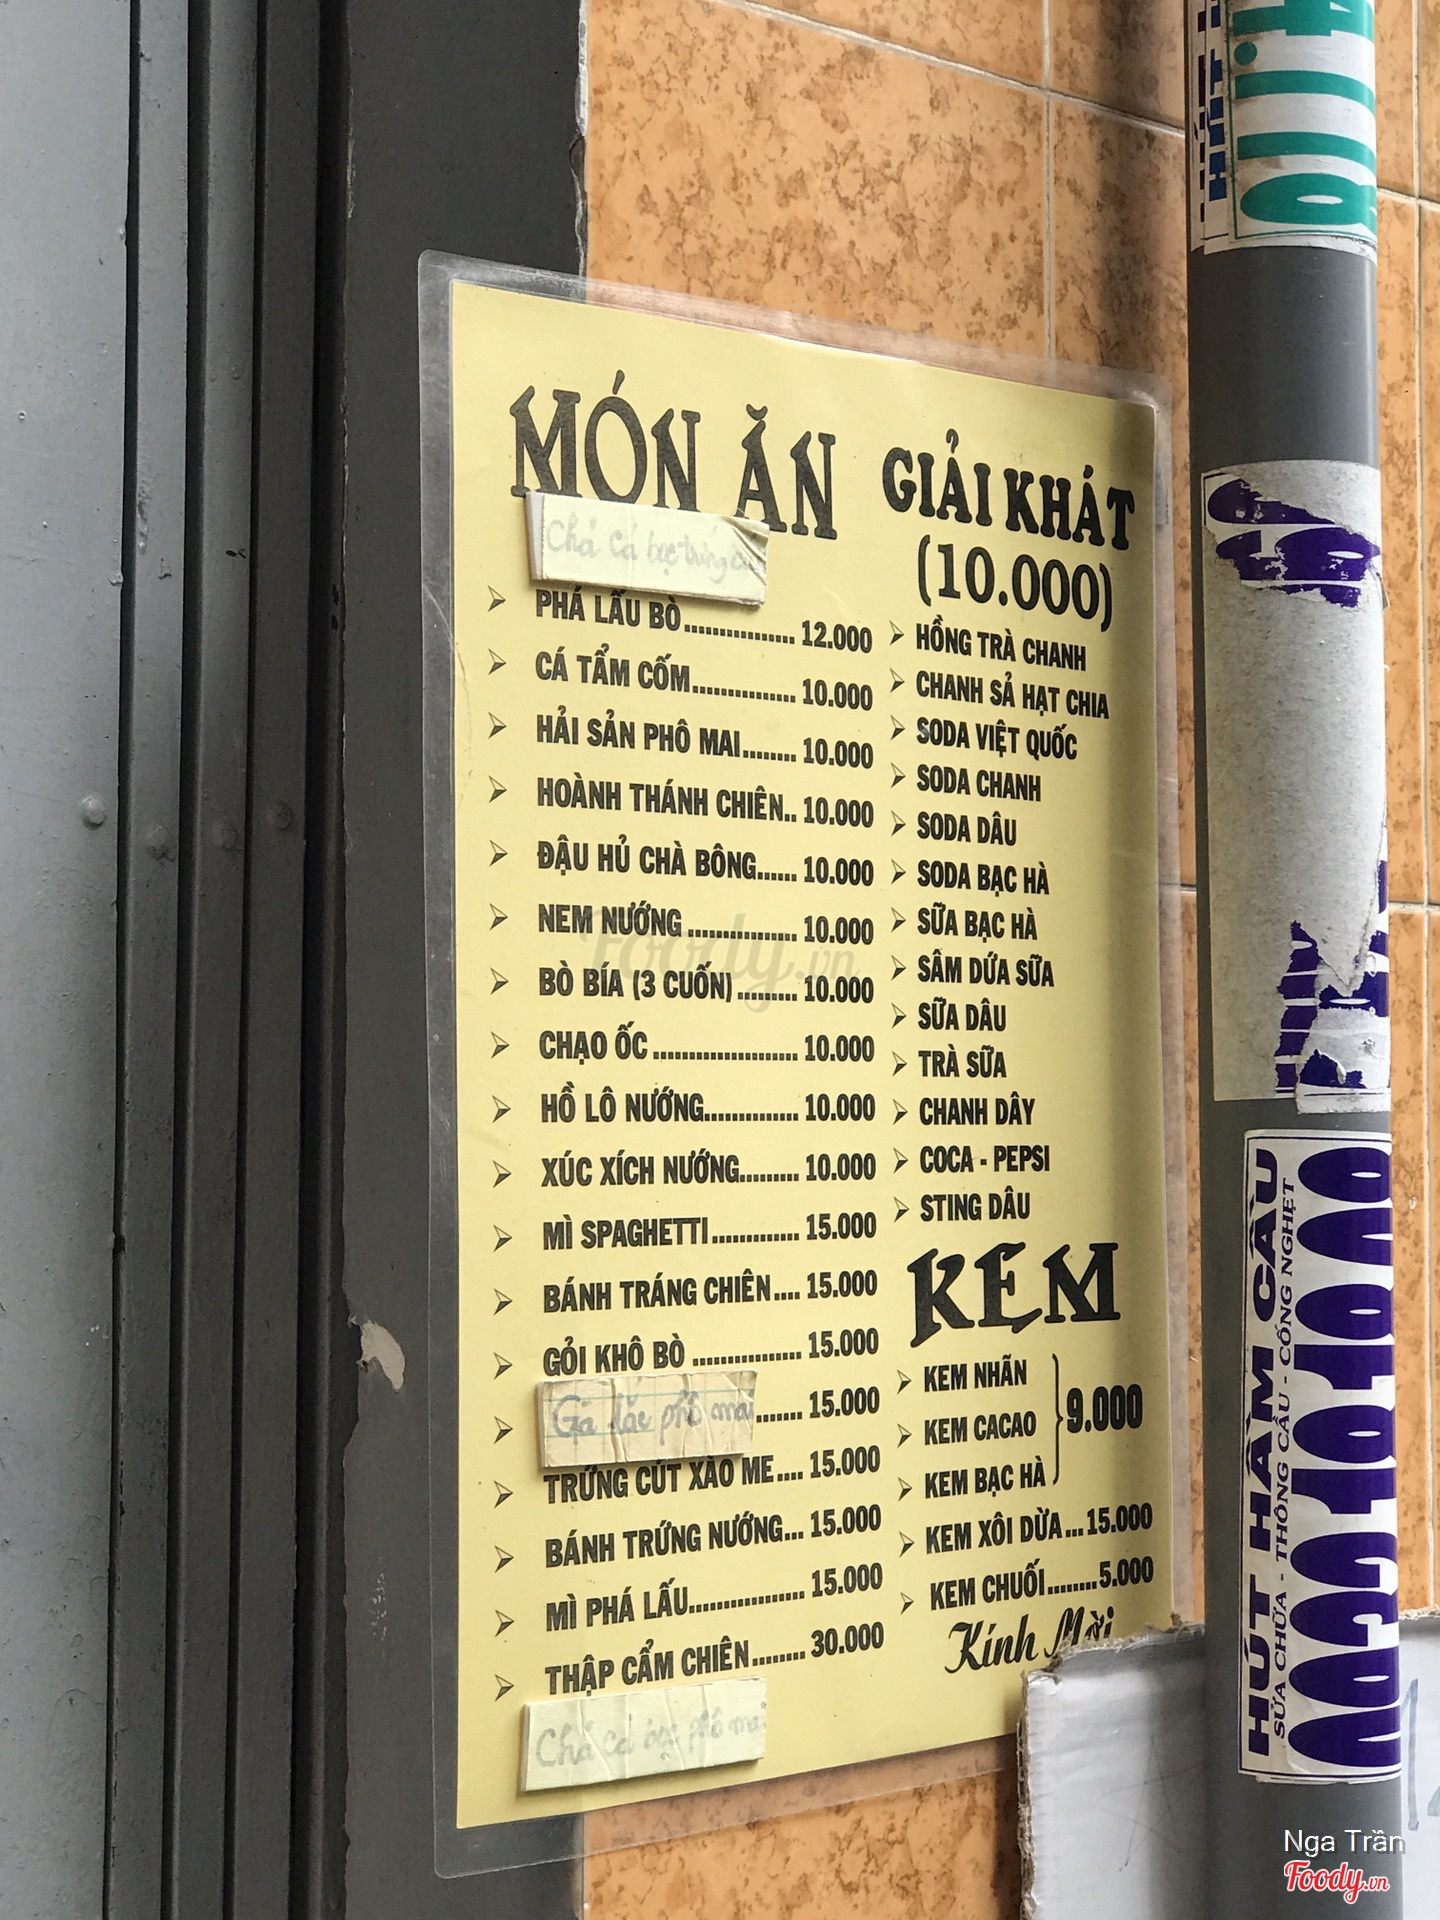 MÓN ĂN
Chả Cá bọc trứng cút
PHÁ LẤU BÒ................ 12.000
CÁ TẨM CỐM............... 10.000
HẢI SẢN PHÔ MAI........ 10.000
HOÀNH THÁNH CHIÊN.. 10.000
ĐẬU HỦ CHÀ BÔNG...... 10.000
NEM NƯỚNG ................ 10.000
BÒ BÍA (3 CUỐN) ......... 10.000
CHẠO ỐC ..................... 10.000
HỒ LÔ NƯỚNG.............. 10.000
XÚC XÍCH NƯỚNG......... 10.000
MÌ SPAGHETTI............. 15.000
BÁNH TRÁNG CHIÊN.... 15.000
GỎI KHÔ BÒ ................ 15.000
Gà lắc phô mai ....... 15.000
TRỨNG CÚT XÀO ME.... 15.000
BÁNH TRỨNG NƯỚNG... 15.000
MÌ PHÁ LẤU................. 15.000
THẬP CẨM CHIÊN........ 30.000
Chả cá bọc phô mai
GIẢI KHÁT
(10.000)
HỒNG TRÀ CHANH
CHANH SẢ HẠT CHIA
SODA VIỆT QUỐC
SODA CHANH
SODA DÂU
SODA BẠC HÀ
SỮA BẠC HÀ
SÂM DỨA SỮA
SỮA DÂU
TRÀ SỮA
CHANH DÂY
COCA - PEPSI
STING DÂU
KEM
KEM NHÃN
KEM CACAO
9.000
KEM BẠC HÀ
KEM XÔI DỪA...15.000
KEM CHUỐI........5.000
Kính Mời
HÚT
HÚT HẦM CẦU
SỬA CHỮA - THÔNG CẦU - CỐNG NGHẸT
Foody.vn
Nga Trần
Foody.vn